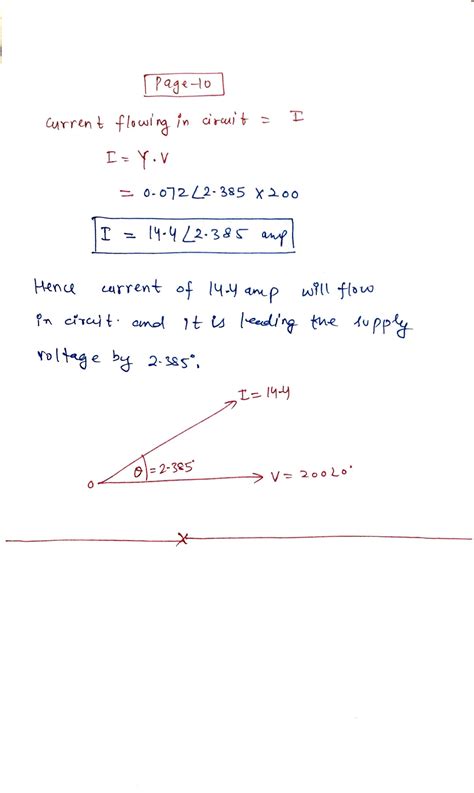 Page-10
Current flowing in circuit = I
I = Y.V
= 0.072∠2.385 × 200
I = 14.4∠2.385 amp
Hence current of 14.4 amp will flow
in circuit. and it is leading the supply
voltage by 2.385°.
I = 14.4
θ = 2.385°
O
V = 200∠0°